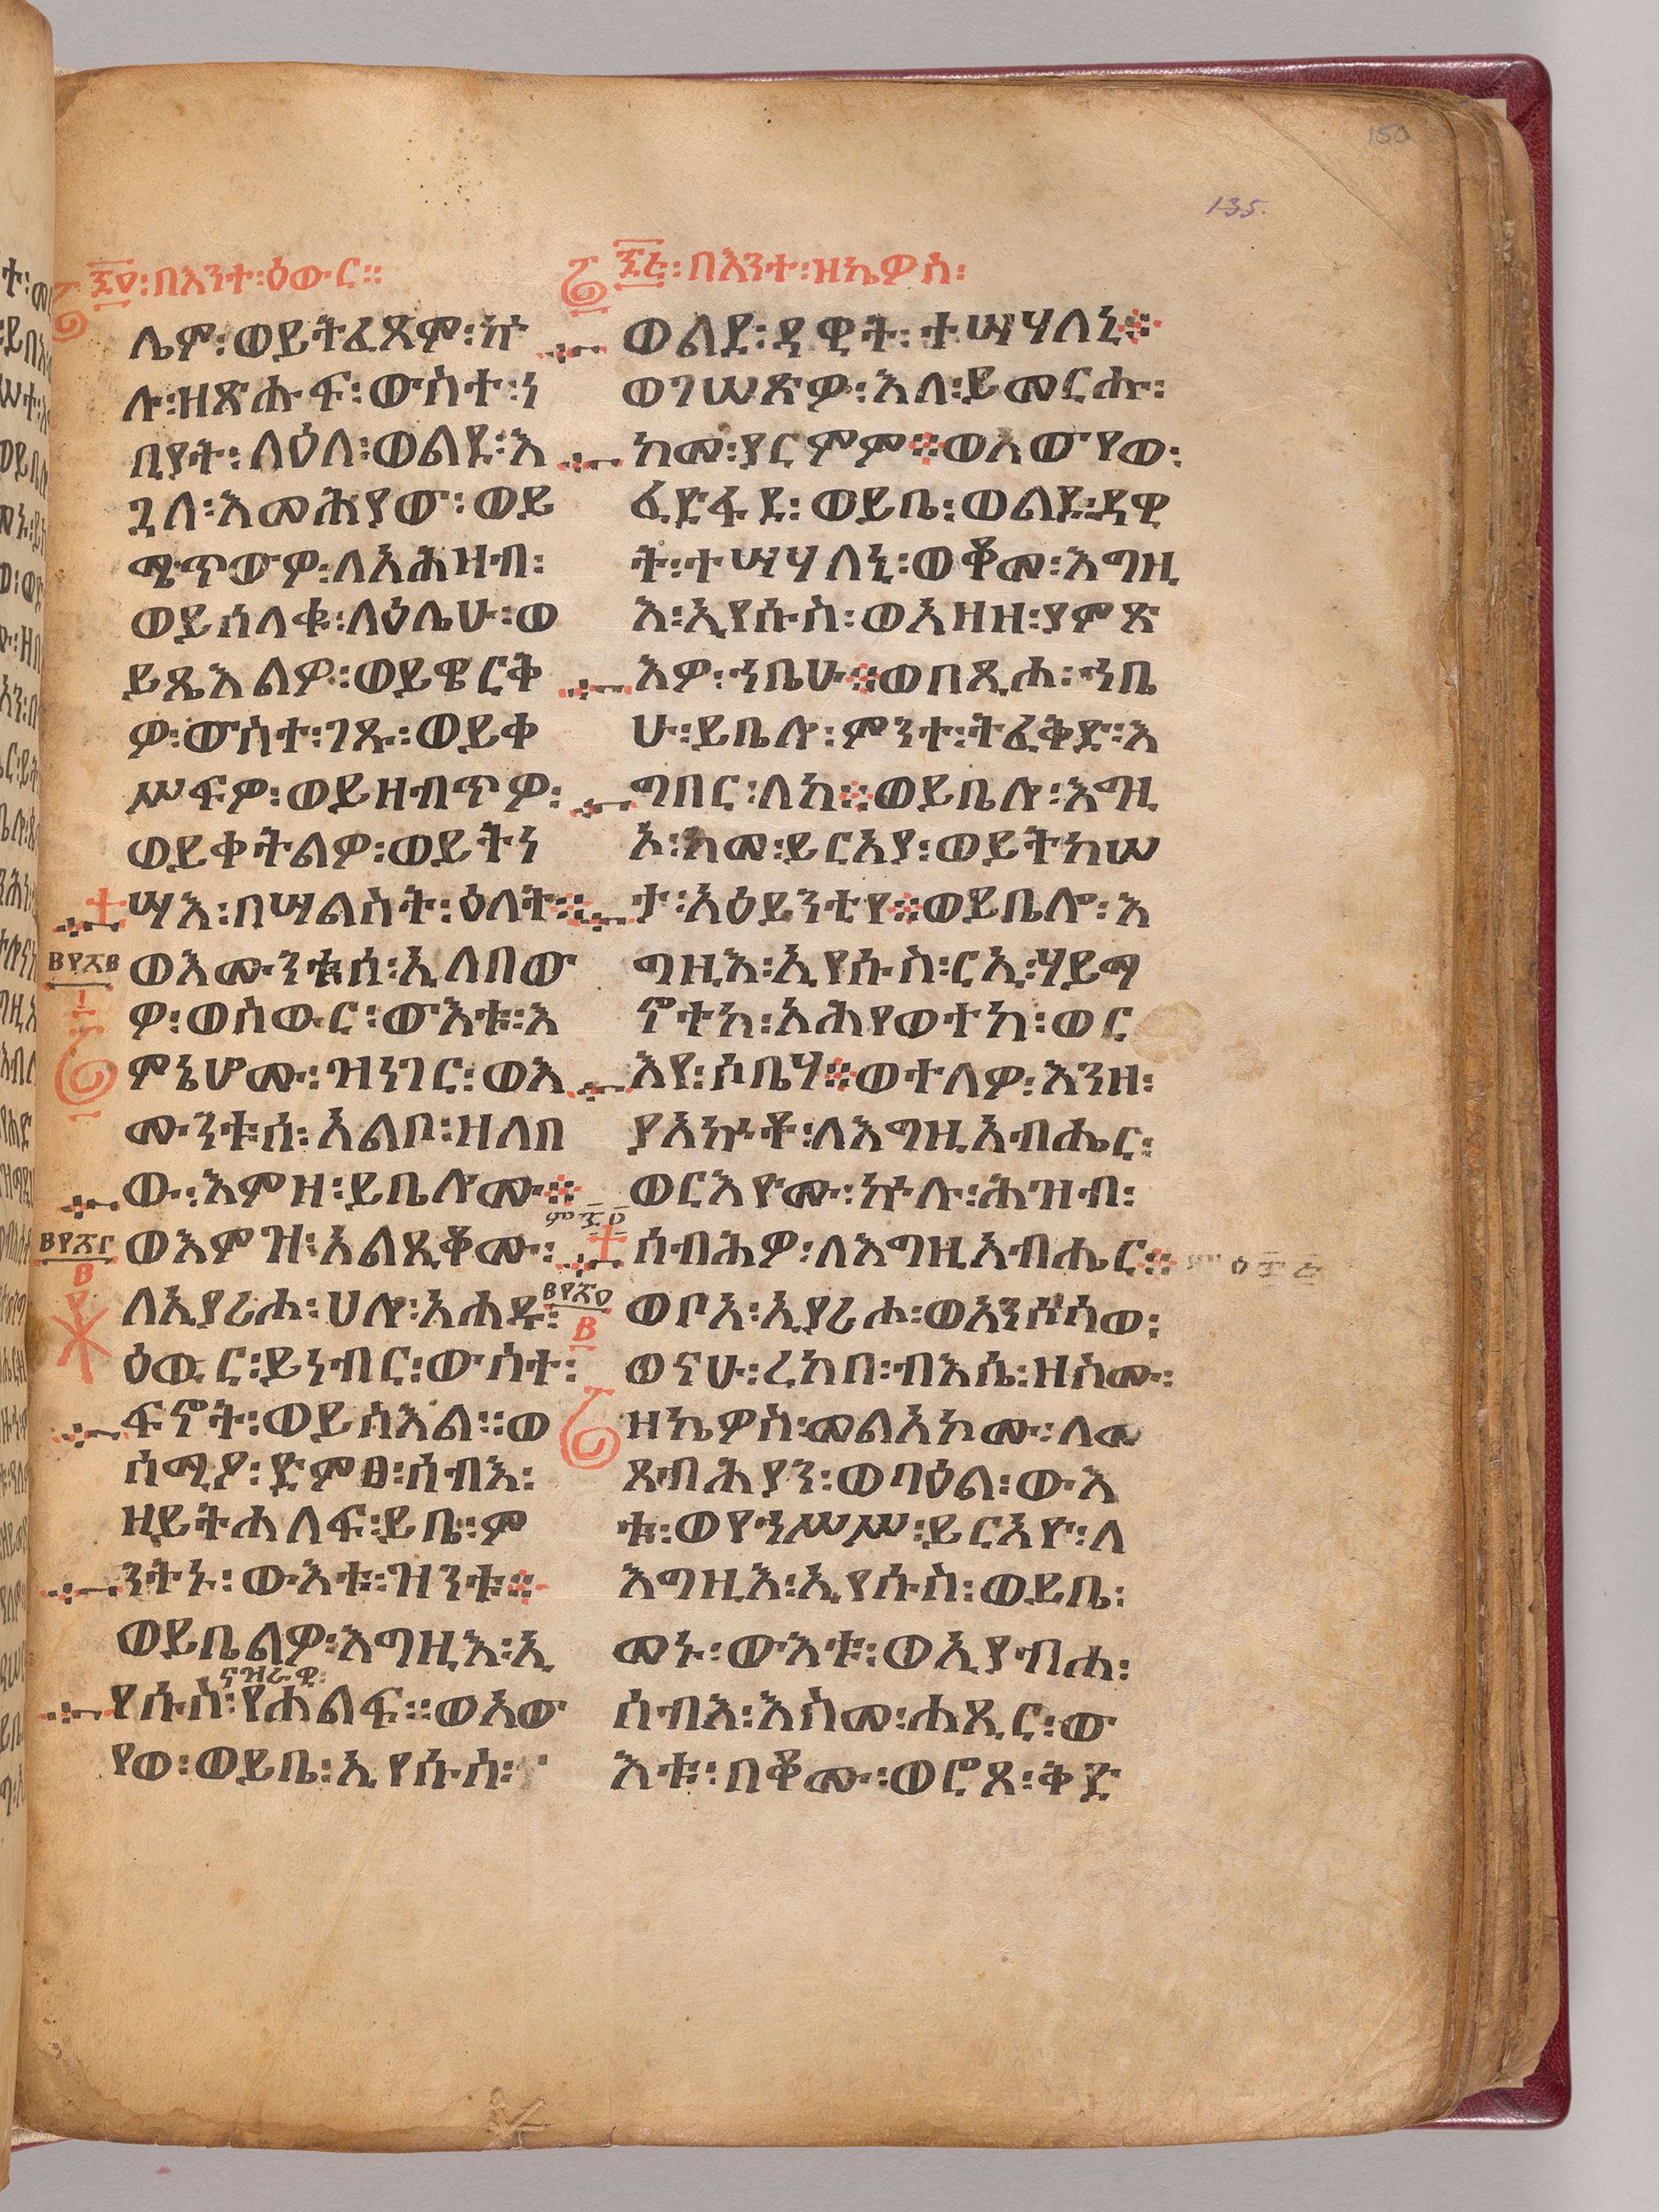 150
135.
፷፬፡በእንተ፡ዕውር።
ሌም፡ወይትፈጸም፡ኵ
ሉ፡ዘጽሑፍ፡ውስተ፡ነ
ቢያት፡ላዕለ፡ወልደ፡እ
ጓለ፡እመሕያው፡ወይ
ሜጥውዎ፡ለአሕዛብ፡
ወይሰላቁ፡ላዕሌሁ፡ወ
ይጼእልዎ፡ወይዌርቅ
ዎ፡ውስተ፡ገጹ፡ወይቀ
ሥፍዎ፡ወይዘብጥዎ፡
ወይቀትልዎ፡ወይትነ
ሣእ፡በሣልስት፡ዕለት።
ወእሙንቱሰ፡ኢለበው
ዎ፡ወስውር፡ውእቱ፡እ
ምኔሆሙ፡ዝነገር፡ወእ
ሙንቱሰ፡አልቦ፡ዘለበ
ው፡እምዘ፡ይቤሎሙ።
ወእምዝ፡አልጺቆሙ፡
ለኢያሪሖ፡ሀሎ፡አሐዱ፡
ዕዉር፡ይነብር፡ውስተ፡
ፍኖት፡ወይስእል።ወ
ሰሚዖ፡ድምፀ፡ሰብእ፡
ዘይትሐለፍ፡ይቤ፡ም
ንትኑ፡ውእቱ፡ዝንቱ።
ወይቤልዎ፡እግዚእ፡ኢ
ናዝራዊ፡
የሱስ፡የሐልፍ።ወአው
የወ፡ወይቤ፡ኢየሱስ፡
፷፭፡በእንተ፡ዘኬዎስ፡
ወልደ፡ዳዊት፡ተሣሃለኒ።
ወገሠጽዎ፡እለ፡ይመርሑ፡
ከመ፡ያርምም።ወአውየወ፡
ፈድፋደ፡ወይቤ፡ወልደ፡ዳዊ
ት፡ተሣሃለኒ፡ወቆመ፡እግዚ
እ፡ኢየሱስ፡ወአዘዘ፡ያምጽ
እዎ፡ኀቤሁ።ወበጺሖ፡ኀቤ
ሁ፡ይቤሎ፡ምንተ፡ትፈቅድ፡እ
ግበር፡ለከ።ወይቤሎ፡እግዚ
ኦ፡ከመ፡ይርአያ፡ወይትከሠ
ታ፡አዕይንቲየ።ወይቤሎ፡እ
ግዚእ፡ኢየሱስ፡ርኢ፡ሃይማ
ኖትከ፡አሕየወተከ፡ወር
እየ፡ሶቤሃ።ወተለዎ፡እንዘ፡
ያአኵቶ፡ለእግዚአብሔር፡
ወርእዮሙ፡ኵሉ፡ሕዝብ፡
ሰብሕዎ፡ለእግዚአብሔር።
ወቦአ፡ኢያሪሖ፡ወአንሶሰወ፡
ወናሁ፡ረከበ፡ብእሴ፡ዘስሙ፡
ዘኬዎስ፡መልአኮሙ፡ለመ
ጸብሕያን፡ወባዕል፡ውእ
ቱ፡ወየኀሥሥ፡ይርአዮ፡ለ
እግዚእ፡ኢየሱስ፡ወይቤ፡
መኑ፡ውእቱ፡ወኢያብሖ፡
ሰብእ፡እስመ፡ሐጺር፡ው
እቱ፡በቆሙ፡ወሮጸ፡ቅድ